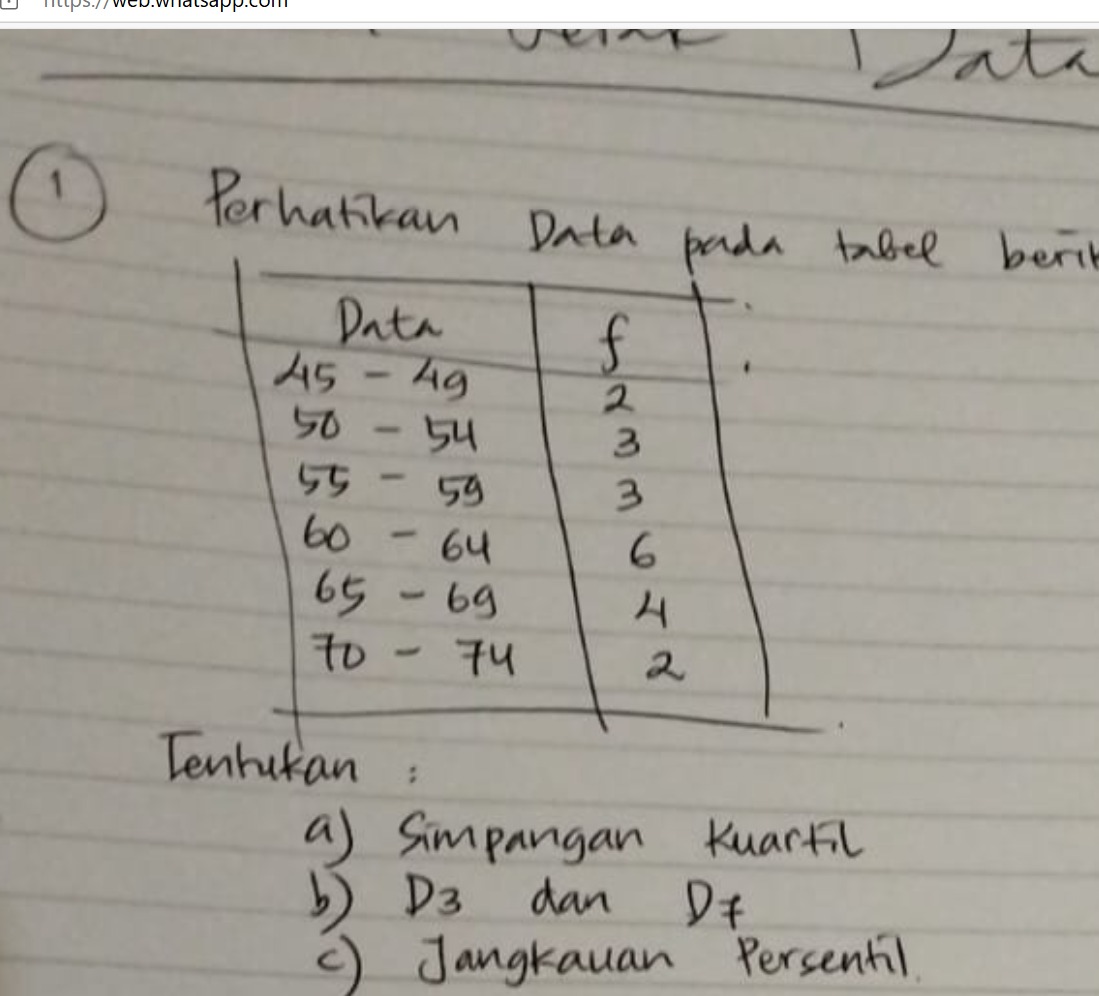 https://web.whatsapp.com
Data
1 Perhatikan Data pada tabel
Data f
45 - 49 2
50 - 54 3
55 - 59 3
60 - 64 6
65 - 69 4
70 - 74 2
Tentukan :
a) Simpangan Kuartil
b) D3 dan D7
c) Jangkauan Persentil.